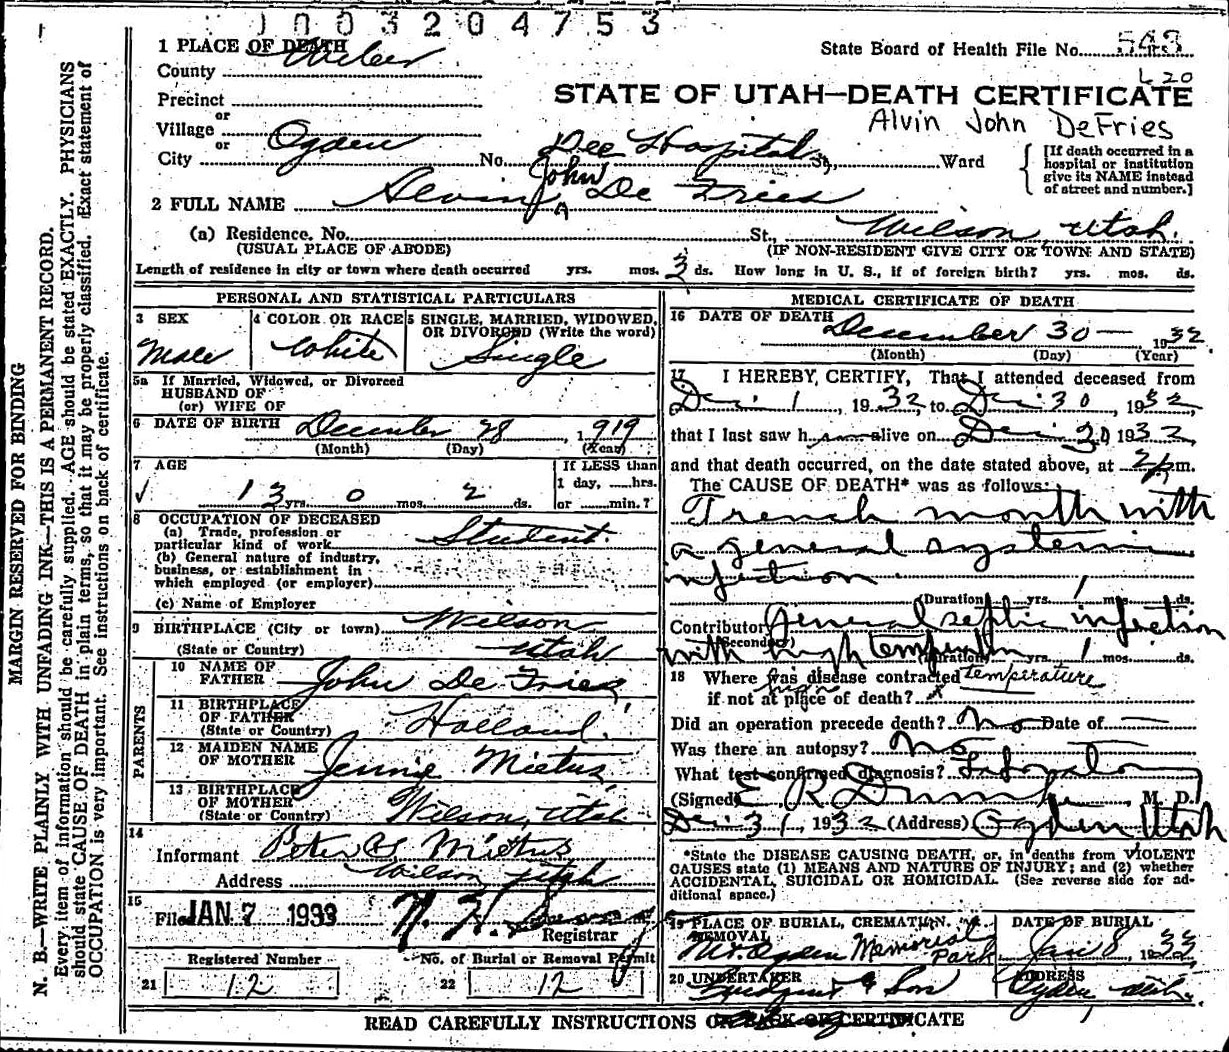 1003204753
1 PLACE OF DEATH
County Weber
State Board of Health File No. 543
L 20
Precinct
or
Village
or
STATE OF UTAH—DEATH CERTIFICATE
Alvin John DeFries
City Ogden No. Dee Hospital St., Ward
[If death occurred in a
hospital or institution
give its NAME instead
of street and number.]
John
2 FULL NAME Alvin De Fries
(a) Residence. No. St. Wilson, Utah.
(USUAL PLACE OF ABODE) (IF NON-RESIDENT GIVE CITY OR TOWN AND STATE)
Length of residence in city or town where death occurred yrs. mos. 3 ds. How long in U. S., if of foreign birth? yrs. mos. ds.
PERSONAL AND STATISTICAL PARTICULARS
3 SEX
Male
4 COLOR OR RACE
White
5 SINGLE, MARRIED, WIDOWED,
OR DIVORCED (Write the word)
Single
5a If Married, Widowed, or Divorced
HUSBAND OF
(or) WIFE OF
6 DATE OF BIRTH December 28, 1919
(Month) (Day) (Year)
7 AGE
13 yrs. 0 mos. 2 ds.
If LESS than
1 day, hrs.
or min.?
8 OCCUPATION OF DECEASED
(a) Trade, profession or
particular kind of work Student
(b) General nature of industry,
business, or establishment in
which employed (or employer)
(c) Name of Employer
9 BIRTHPLACE (City or town) Wilson
(State or Country) Utah
PARENTS
10 NAME OF
FATHER John De Fries
11 BIRTHPLACE
OF FATHER
(State or Country) Holland.
12 MAIDEN NAME
OF MOTHER Jennie Mietus
13 BIRTHPLACE
OF MOTHER
(State or Country) Wilson, Utah
14
Informant Peter Mietus
Address Wilson Utah
15
File JAN 7 1933
Registrar
Registered Number
21 12
No. of Burial or Removal Permit
22 12
MEDICAL CERTIFICATE OF DEATH
16 DATE OF DEATH
December 30 — 1932
(Month) (Day) (Year)
17 I HEREBY CERTIFY, That I attended deceased from
Dec 1, 1932, to Dec 30, 1932,
that I last saw h alive on Dec 30 1932,
and that death occurred, on the date stated above, at 2 p m.
The CAUSE OF DEATH* was as follows:
Trench mouth with
a general systemic
infection
(Duration) yrs. 1 mos. ds.
Contributory General septic infection
(Secondary)
with high temperature
(Duration) yrs. 1 mos. ds.
18 Where was disease contracted temperature
high
if not at place of death?
Did an operation precede death? No Date of —
Was there an autopsy? No
What test confirmed diagnosis? Laboratory
(Signed) E R Dumke, M. D.
Dec 31, 1932 (Address) Ogden Utah
*State the DISEASE CAUSING DEATH, or, in deaths from VIOLENT
CAUSES state (1) MEANS AND NATURE OF INJURY; and (2) whether
ACCIDENTAL, SUICIDAL OR HOMICIDAL. (See reverse side for ad-
ditional space.)
19 PLACE OF BURIAL, CREMATION,
REMOVAL
Mt. Ogden Memorial
Park
DATE OF BURIAL
Jan 8, 1933
20 UNDERTAKER
& Son
ADDRESS
Ogden, Utah.
READ CAREFULLY INSTRUCTIONS ON BACK OF CERTIFICATE
MARGIN RESERVED FOR BINDING
N. B.—WRITE PLAINLY WITH UNFADING INK—THIS IS A PERMANENT RECORD.
Every item of information should be carefully supplied. AGE should be stated EXACTLY. PHYSICIANS
should state CAUSE OF DEATH in plain terms, so that it may be properly classified. Exact statement of
OCCUPATION is very important. See instructions on back of certificate.